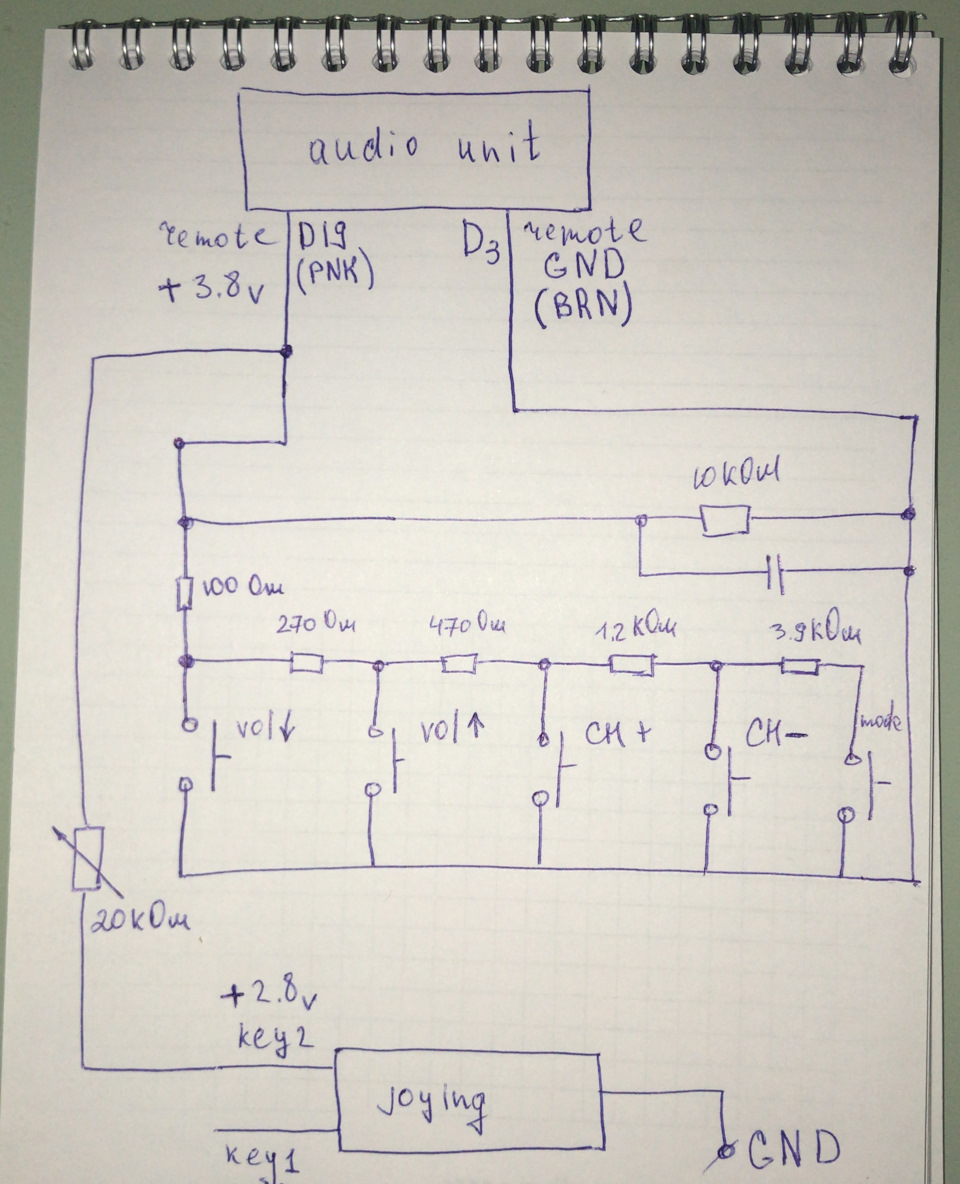 audio unit
remote
+3.8v
D19
(PNK)
D3
remote
GND
(BRN)
10кОм
100 Ом
270 Ом
470 Ом
1,2 кОм
3.9кОм
vol↓
vol↑
CH+
CH-
mode
20кОм
+2.8v
key2
joying
key1
GND